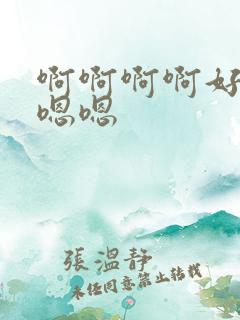 啊啊啊啊好
嗯嗯
張溫静
未经同意禁止转载